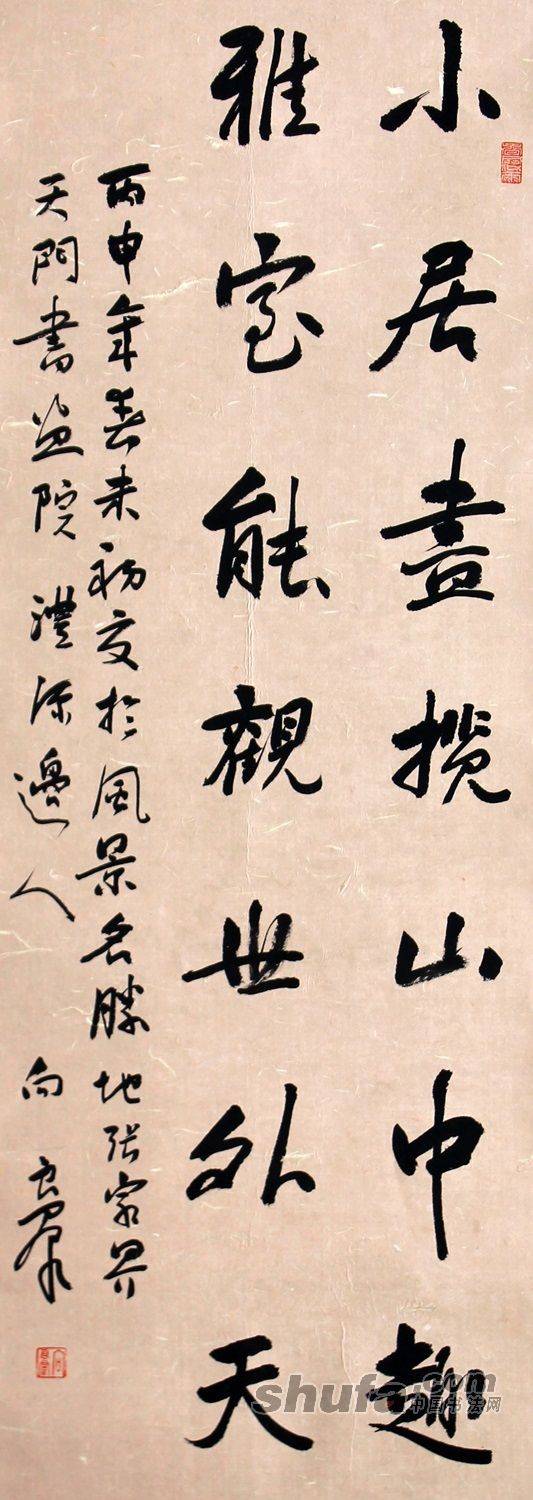 小居盡攬山中趣
雅室能觀世外天
丙申年春末初夏於風景名勝地張家界
天門書畫院 澧源邊人 向
shufa.com
中国书法网